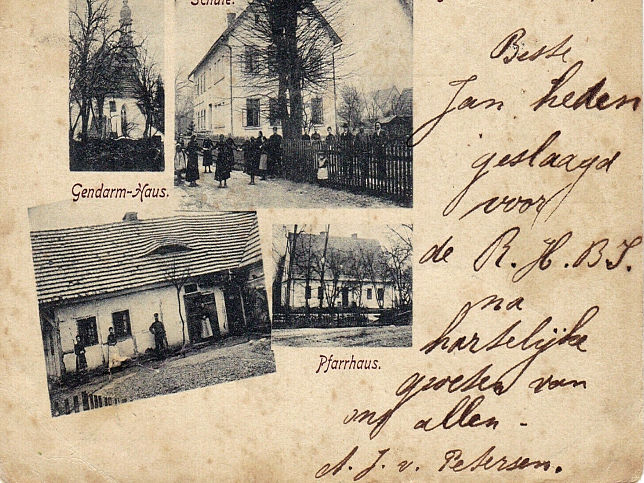 Schule.
Gendarm-Haus.
Pfarrhaus.
Beste
Jan heden
geslaagd
voor
de R. H. B. S.
na
hartelijke
groeten van
ons allen -
A. J. v. Petersen.